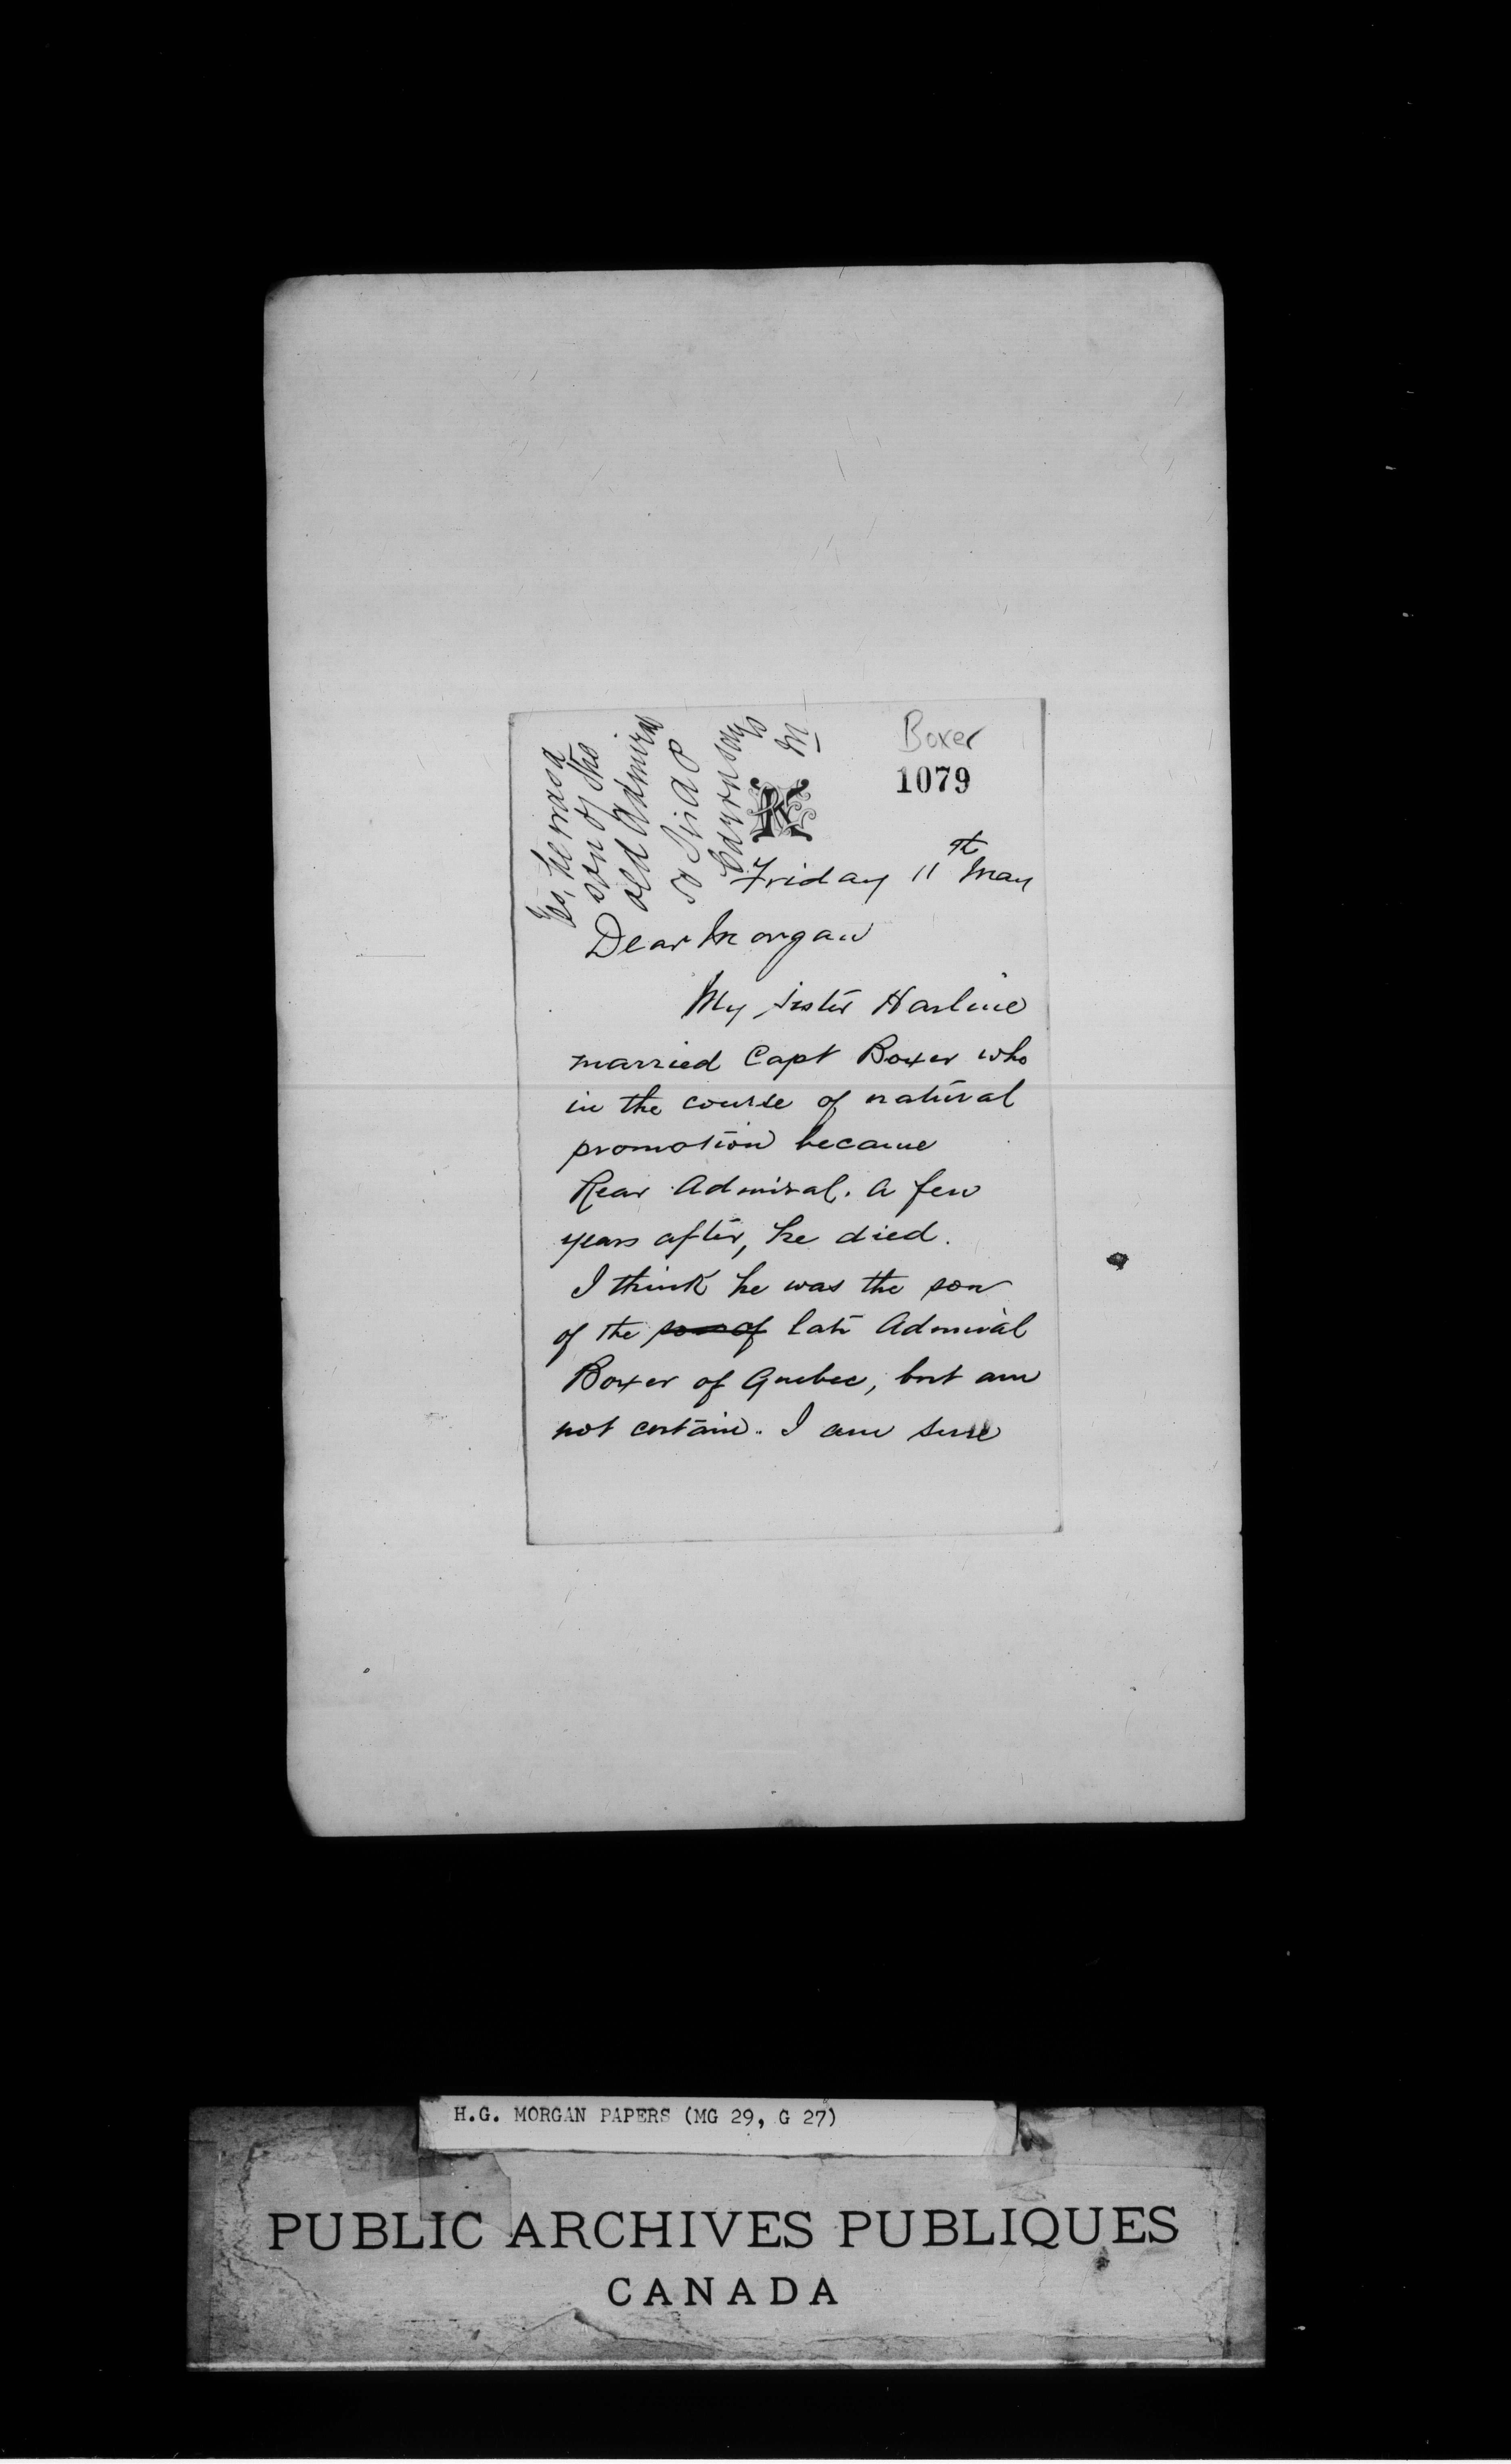 Boxer
1079
Yes, he was a
son of the
old Admiral
so Sir A P
Caron says
M
K
Friday 11th May
Dear Morgan
My sister Harline
married Capt Boxer who
in the course of natural
promotion became
Rear Admiral. A few
years after, he died.
I think he was the son
of the son of late Admiral
Boxer of Quebec, but am
not certain. I am sure
H.G. MORGAN PAPERS (MG 29, G 27)
PUBLIC ARCHIVES PUBLIQUES
CANADA